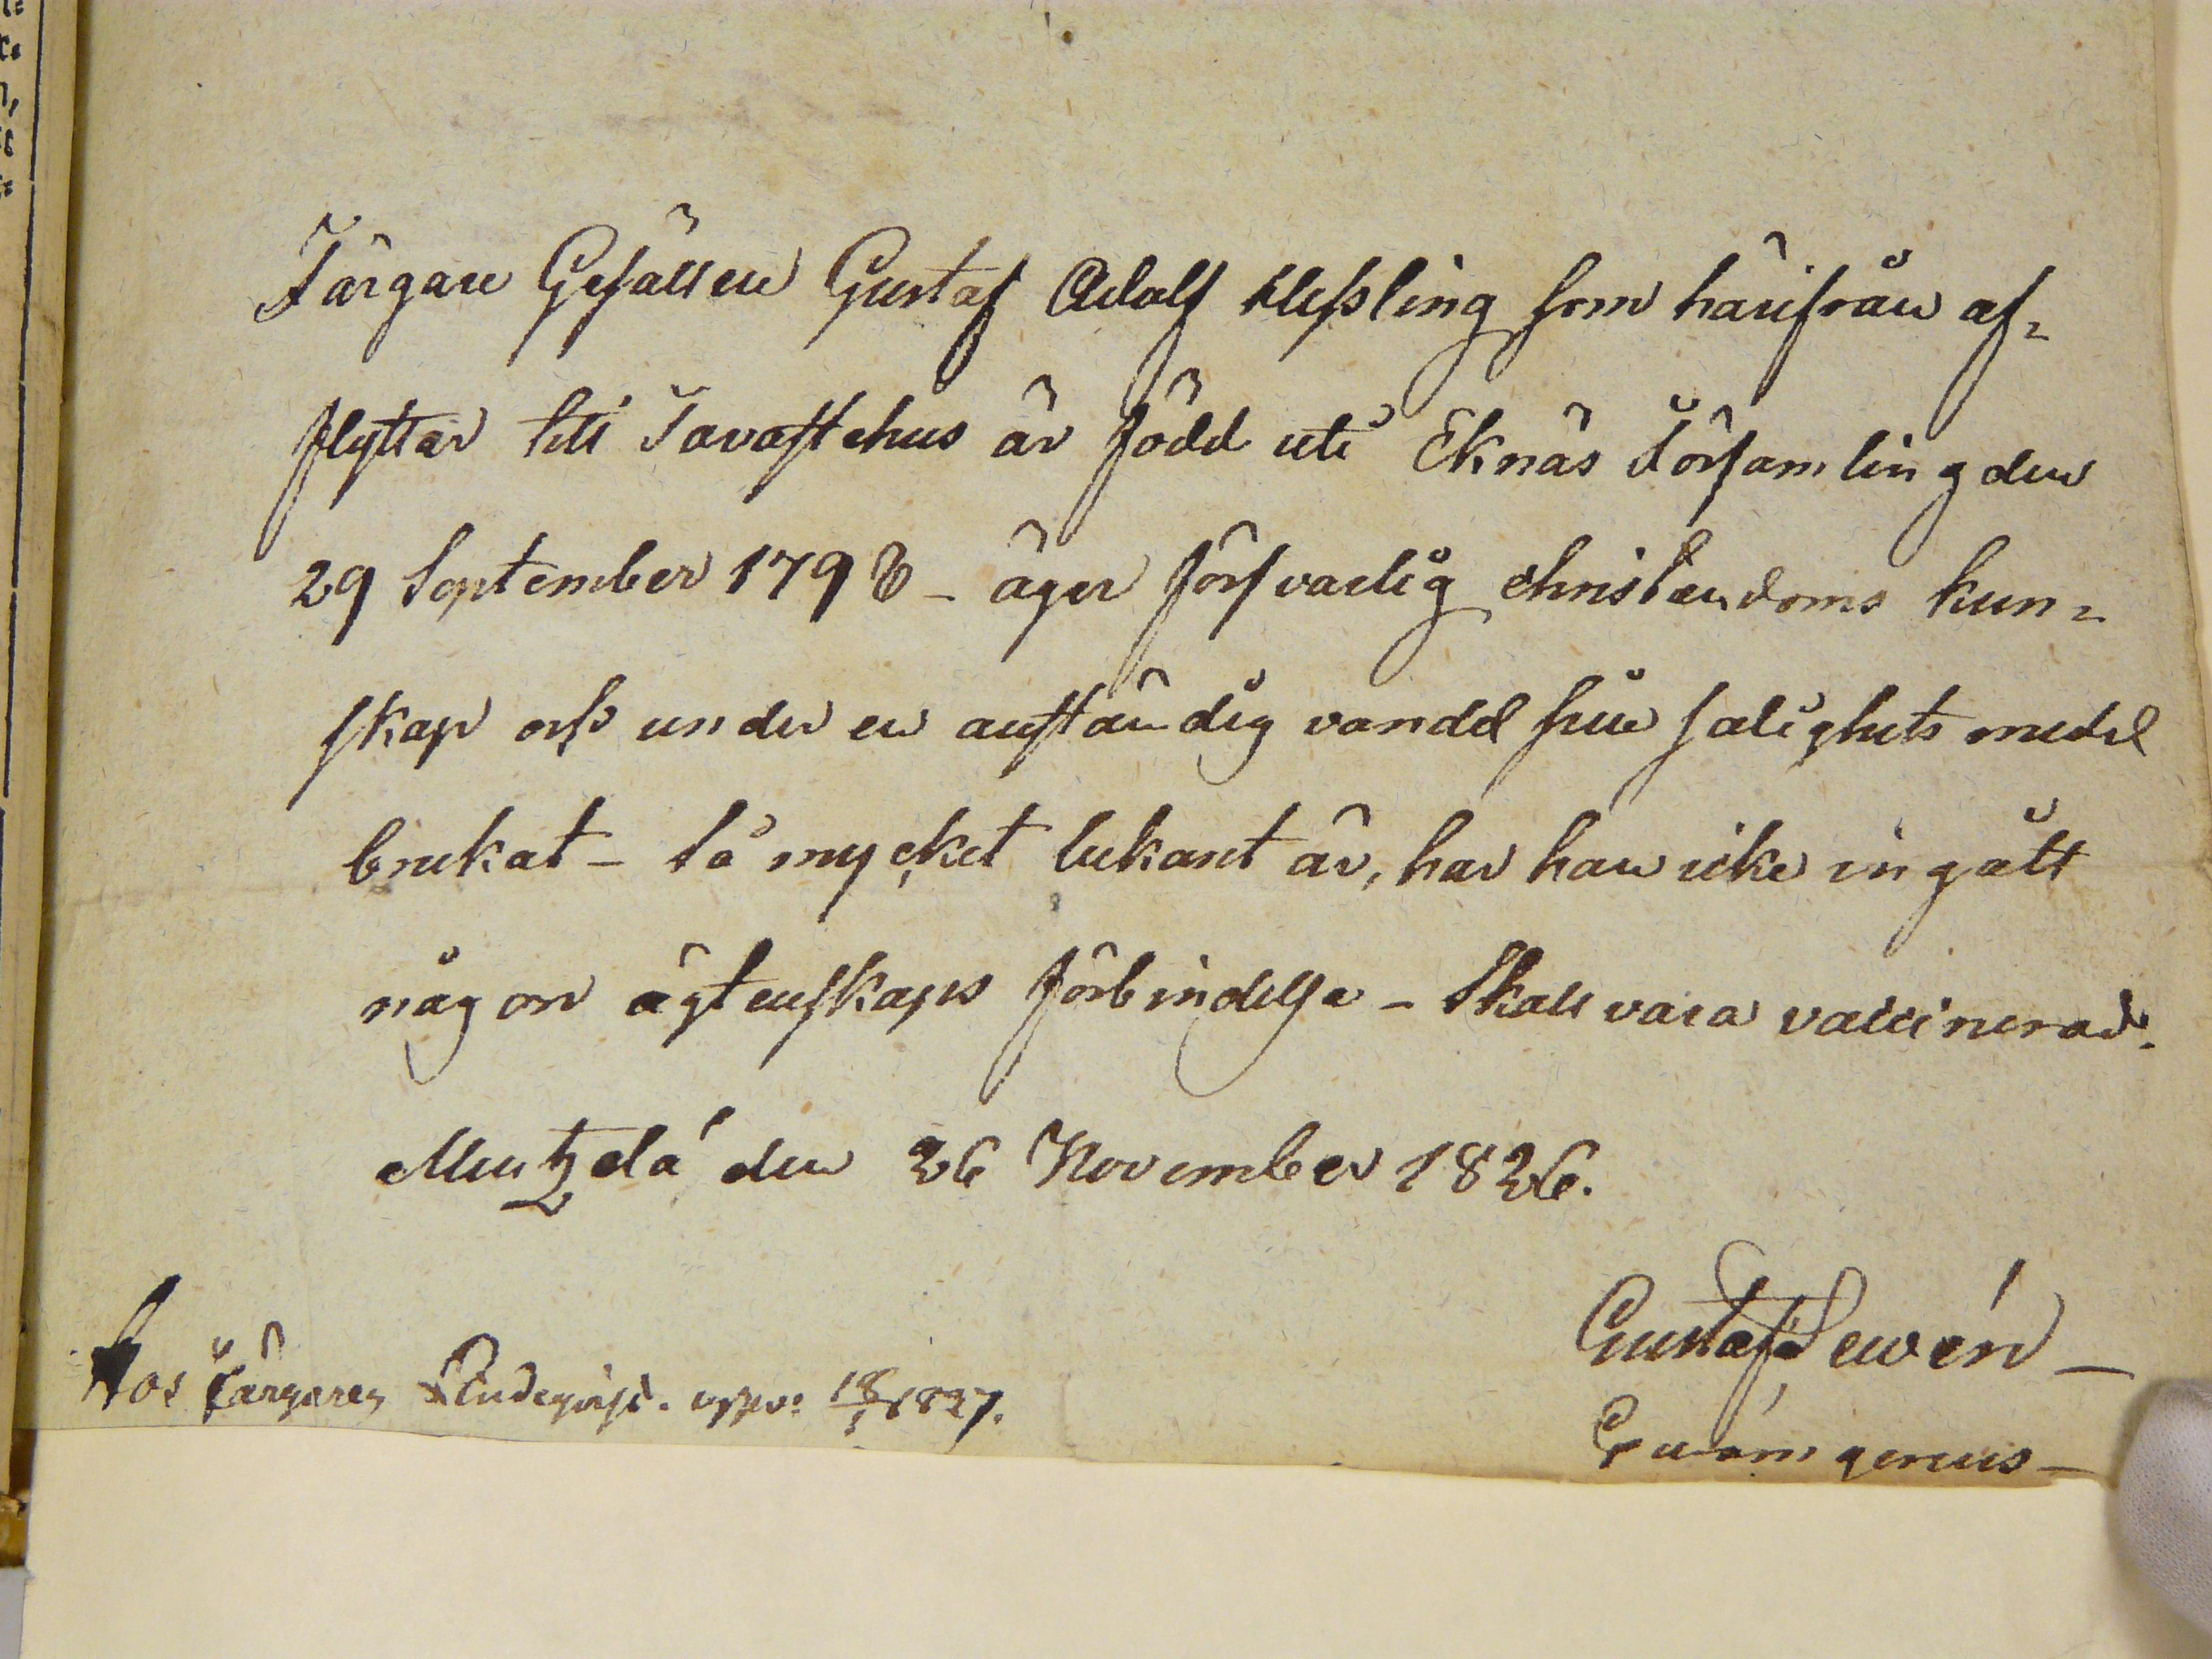 Färgare Gesällen Gustaf Adolf Kyßling som härifrån af=
flyttar till Tavastehus är född uti Eknäs Församling den
29 September 1798 – äger försvarlig christendoms kun=
skap och under en anständig vandel sine salighets medel
brukat – Så mycket bekant är, har han icke ingått
någon ägtenskaps förbindelse – Skall vara vaccinerad.
Mentzelä den 26 November 1826.
Gustaf Lewén –
Hos Färgaren uppv: 18/1 1827.